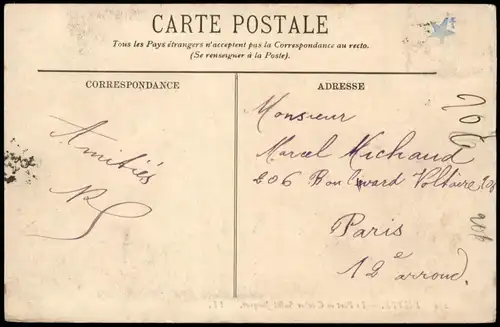 CARTE POSTALE
Tous les Pays étrangers n'acceptent pas la Correspondance au recto.
(Se renseigner à la Poste).
CORRESPONDANCE
ADRESSE
Amitiés
Monsieur
Marcel Michaud
206 Boulevard Voltaire 206
Paris
12e arrond.
206
206